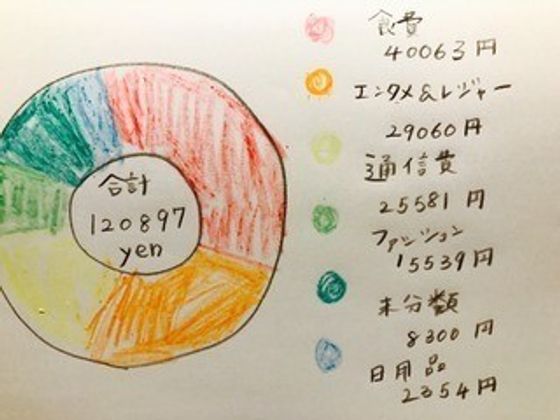 合計
120897
yen
食費
40063円
エンタメ&レジャー
29060円
通信費
25581円
ファッション
15539円
未分類
8300円
日用品
2354円